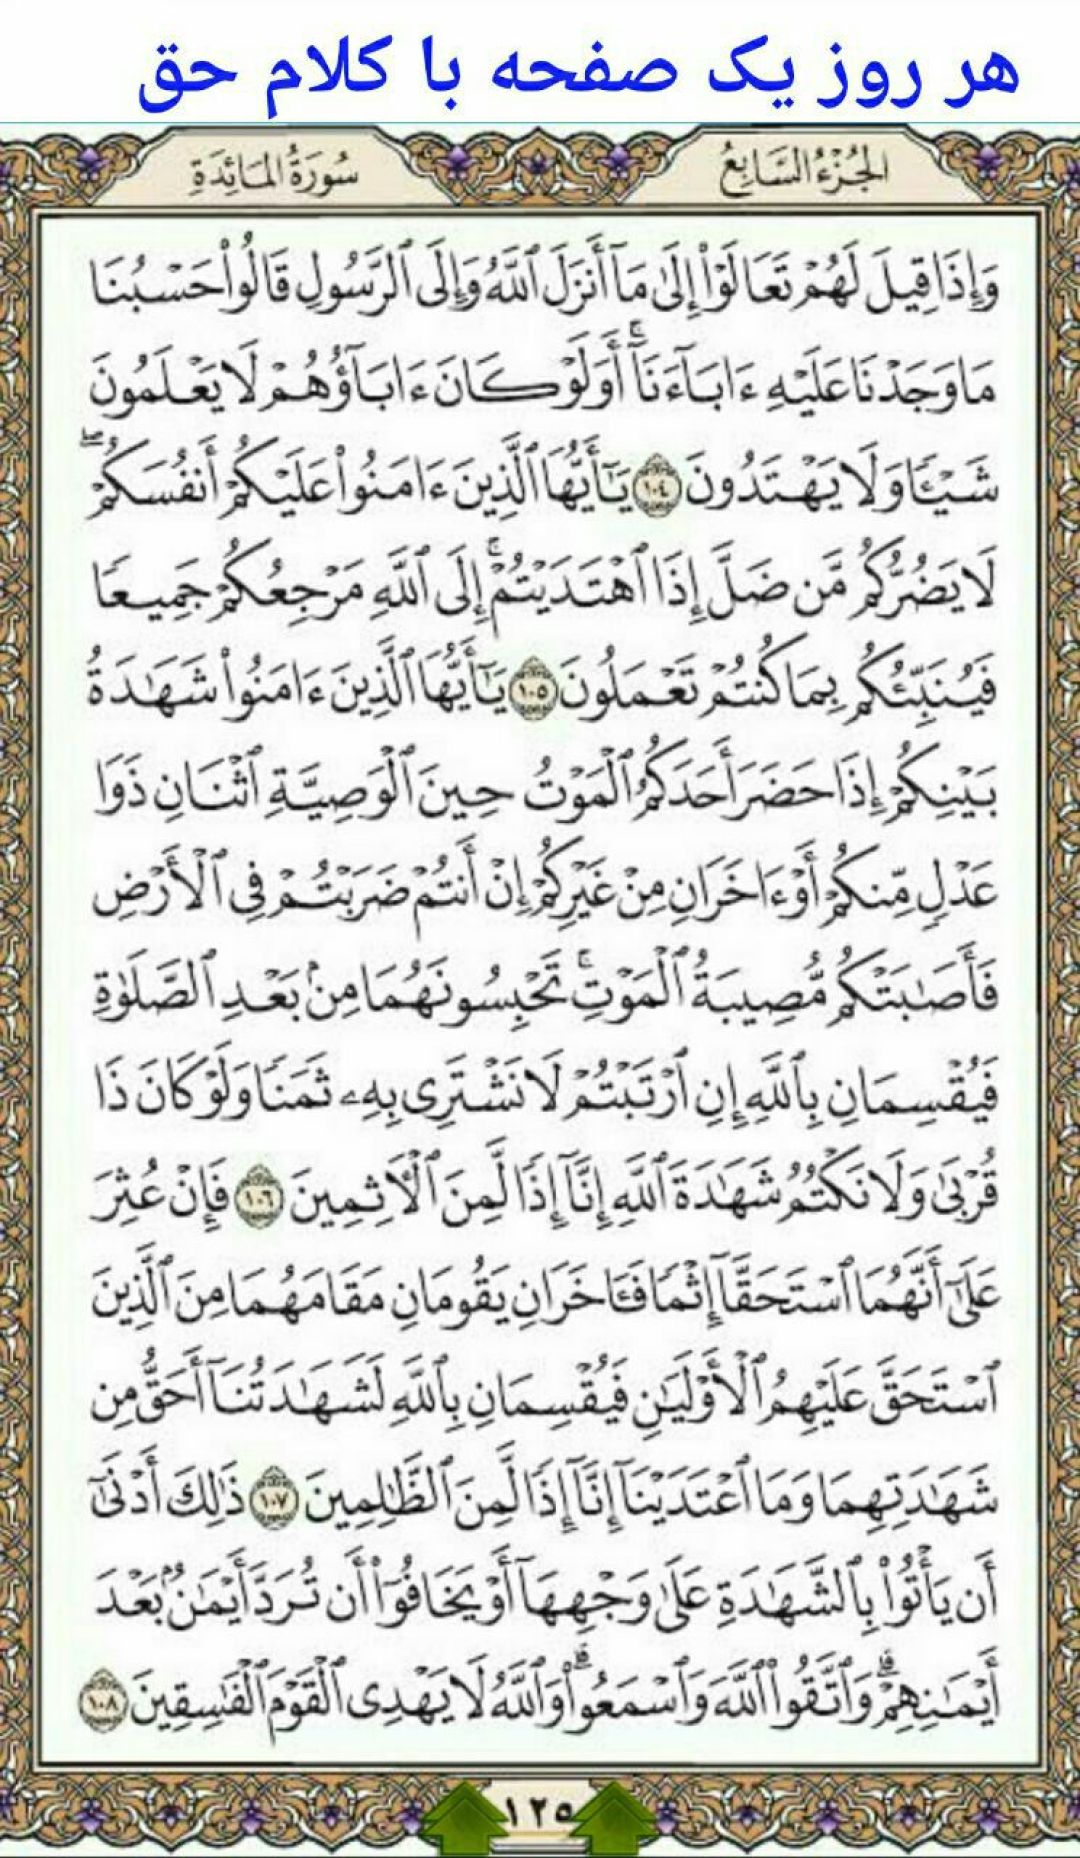 هر روز یک صفحه با کلام حق
الجُزْءُ السَّابِعُ
سُورَةُ المَائِدَةِ
وَإِذَا قِيلَ لَهُمْ تَعَالَوْا۟ إِلَىٰ مَآ أَنزَلَ ٱللَّهُ وَإِلَى ٱلرَّسُولِ قَالُوا۟ حَسْبُنَا
مَا وَجَدْنَا عَلَيْهِ ءَابَآءَنَآ ۚ أَوَلَوْ كَانَ ءَابَآؤُهُمْ لَا يَعْلَمُونَ
شَيْـًٔا وَلَا يَهْتَدُونَ ١٠٤ يَـٰٓأَيُّهَا ٱلَّذِينَ ءَامَنُوا۟ عَلَيْكُمْ أَنفُسَكُمْ ۖ
لَا يَضُرُّكُم مَّن ضَلَّ إِذَا ٱهْتَدَيْتُمْ ۚ إِلَى ٱللَّهِ مَرْجِعُكُمْ جَمِيعًا
فَيُنَبِّئُكُم بِمَا كُنتُمْ تَعْمَلُونَ ١٠٥ يَـٰٓأَيُّهَا ٱلَّذِينَ ءَامَنُوا۟ شَهَـٰدَةُ
بَيْنِكُمْ إِذَا حَضَرَ أَحَدَكُمُ ٱلْمَوْتُ حِينَ ٱلْوَصِيَّةِ ٱثْنَانِ ذَوَا
عَدْلٍ مِّنكُمْ أَوْ ءَاخَرَانِ مِنْ غَيْرِكُمْ إِنْ أَنتُمْ ضَرَبْتُمْ فِى ٱلْأَرْضِ
فَأَصَـٰبَتْكُم مُّصِيبَةُ ٱلْمَوْتِ ۚ تَحْبِسُونَهُمَا مِنۢ بَعْدِ ٱلصَّلَوٰةِ
فَيُقْسِمَانِ بِٱللَّهِ إِنِ ٱرْتَبْتُمْ لَا نَشْتَرِى بِهِۦ ثَمَنًا وَلَوْ كَانَ ذَا
قُرْبَىٰ ۙ وَلَا نَكْتُمُ شَهَـٰدَةَ ٱللَّهِ إِنَّآ إِذًا لَّمِنَ ٱلْـَٔاثِمِينَ ١٠٦ فَإِنْ عُثِرَ
عَلَىٰٓ أَنَّهُمَا ٱسْتَحَقَّآ إِثْمًا فَـَٔاخَرَانِ يَقُومَانِ مَقَامَهُمَا مِنَ ٱلَّذِينَ
ٱسْتَحَقَّ عَلَيْهِمُ ٱلْأَوْلَيَـٰنِ فَيُقْسِمَانِ بِٱللَّهِ لَشَهَـٰدَتُنَآ أَحَقُّ مِن
شَهَـٰدَتِهِمَا وَمَا ٱعْتَدَيْنَآ إِنَّآ إِذًا لَّمِنَ ٱلظَّـٰلِمِينَ ١٠٧ ذَٰلِكَ أَدْنَىٰٓ
أَن يَأْتُوا۟ بِٱلشَّهَـٰدَةِ عَلَىٰ وَجْهِهَآ أَوْ يَخَافُوٓا۟ أَن تُرَدَّ أَيْمَـٰنٌۢ بَعْدَ
أَيْمَـٰنِهِمْ ۗ وَٱتَّقُوا۟ ٱللَّهَ وَٱسْمَعُوا۟ ۗ وَٱللَّهُ لَا يَهْدِى ٱلْقَوْمَ ٱلْفَـٰسِقِينَ ١٠٨
١٢٥